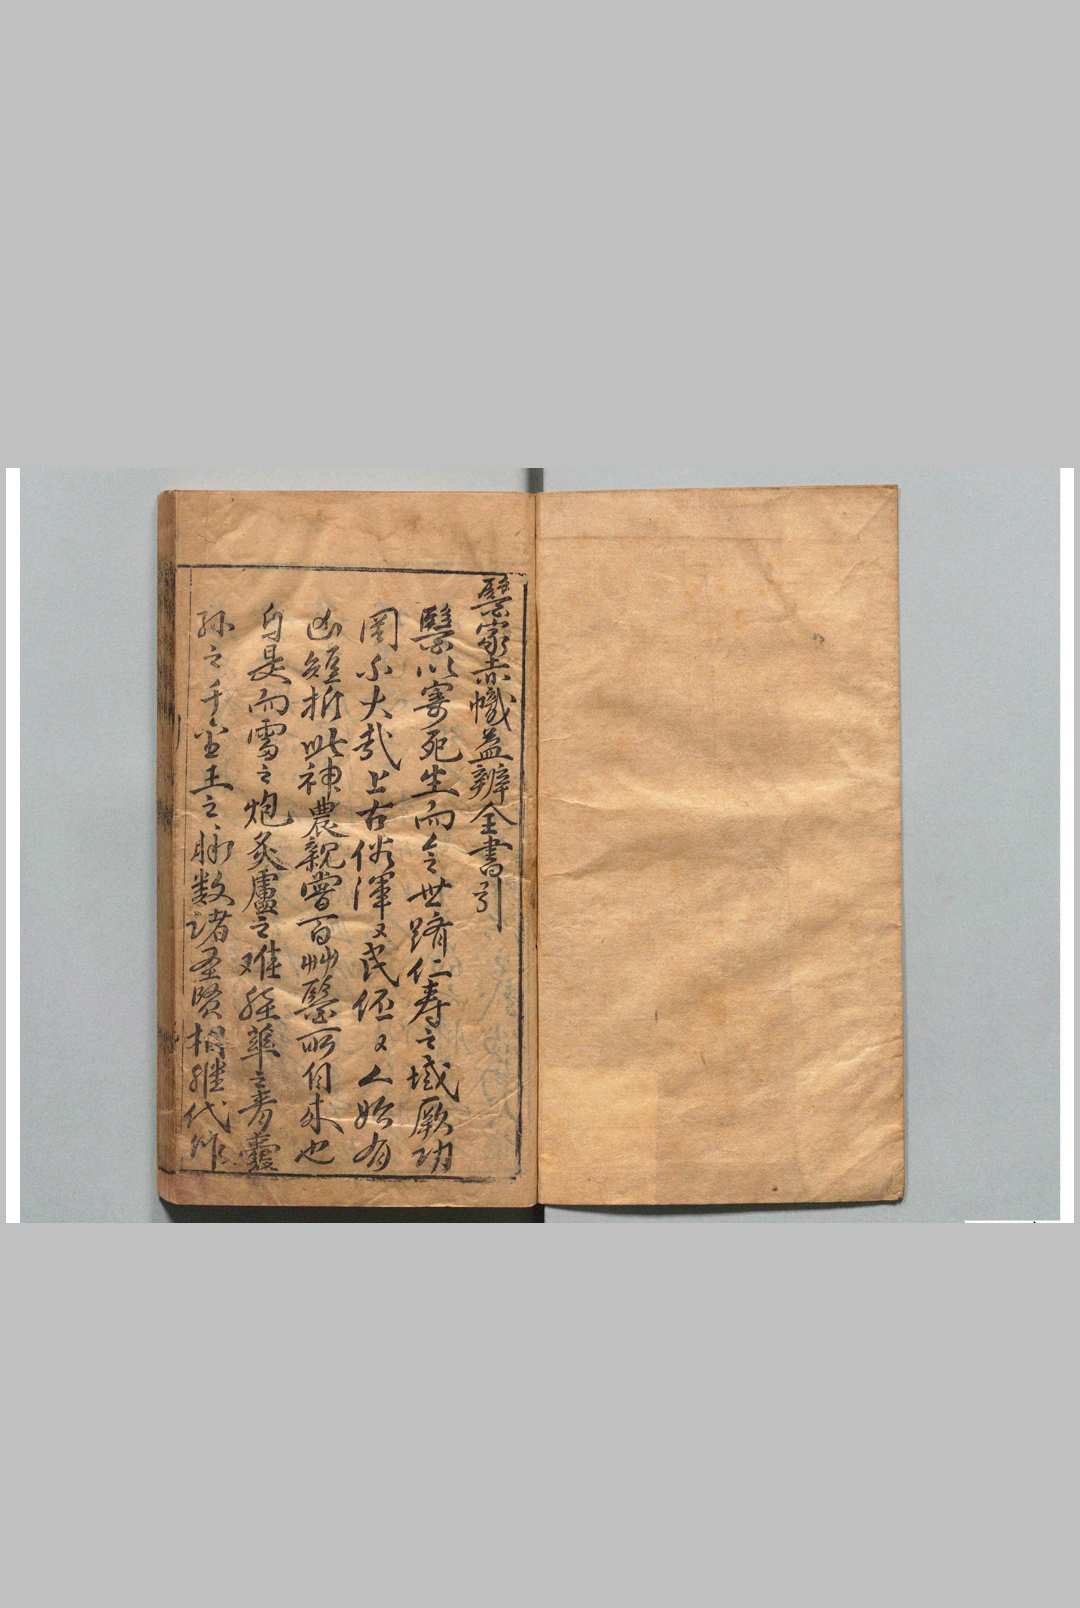 醫家赤幟益辨全書引
醫以寄死生而令世躋仁壽之域厥功
罔不大哉上古俗渾〻民伾〻人始有
凶短折此神農親嘗百艸醫所自来也
自是而雷之炮炙盧之难経華之青囊
孫之千金王之脉数諸圣賢相継代作